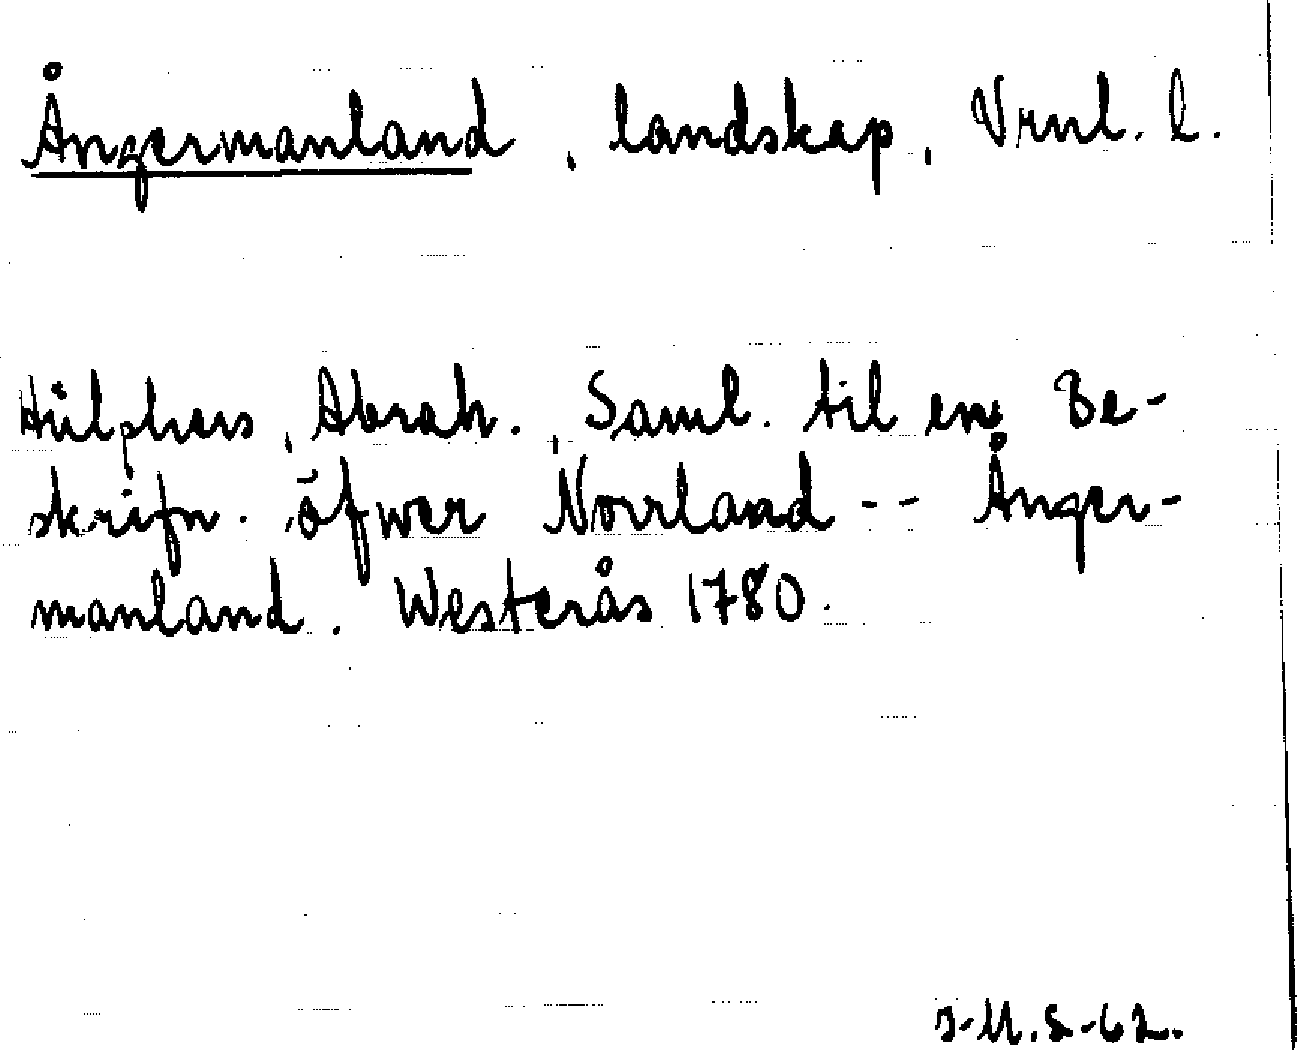 Ångermanland, landskap, Vrnl. l.
Hülphers, Abrah., Saml. til en Be-
skrifn. öfwer Norrland -- Ånger-
manland. Westerås 1780.
J-M.S-62.